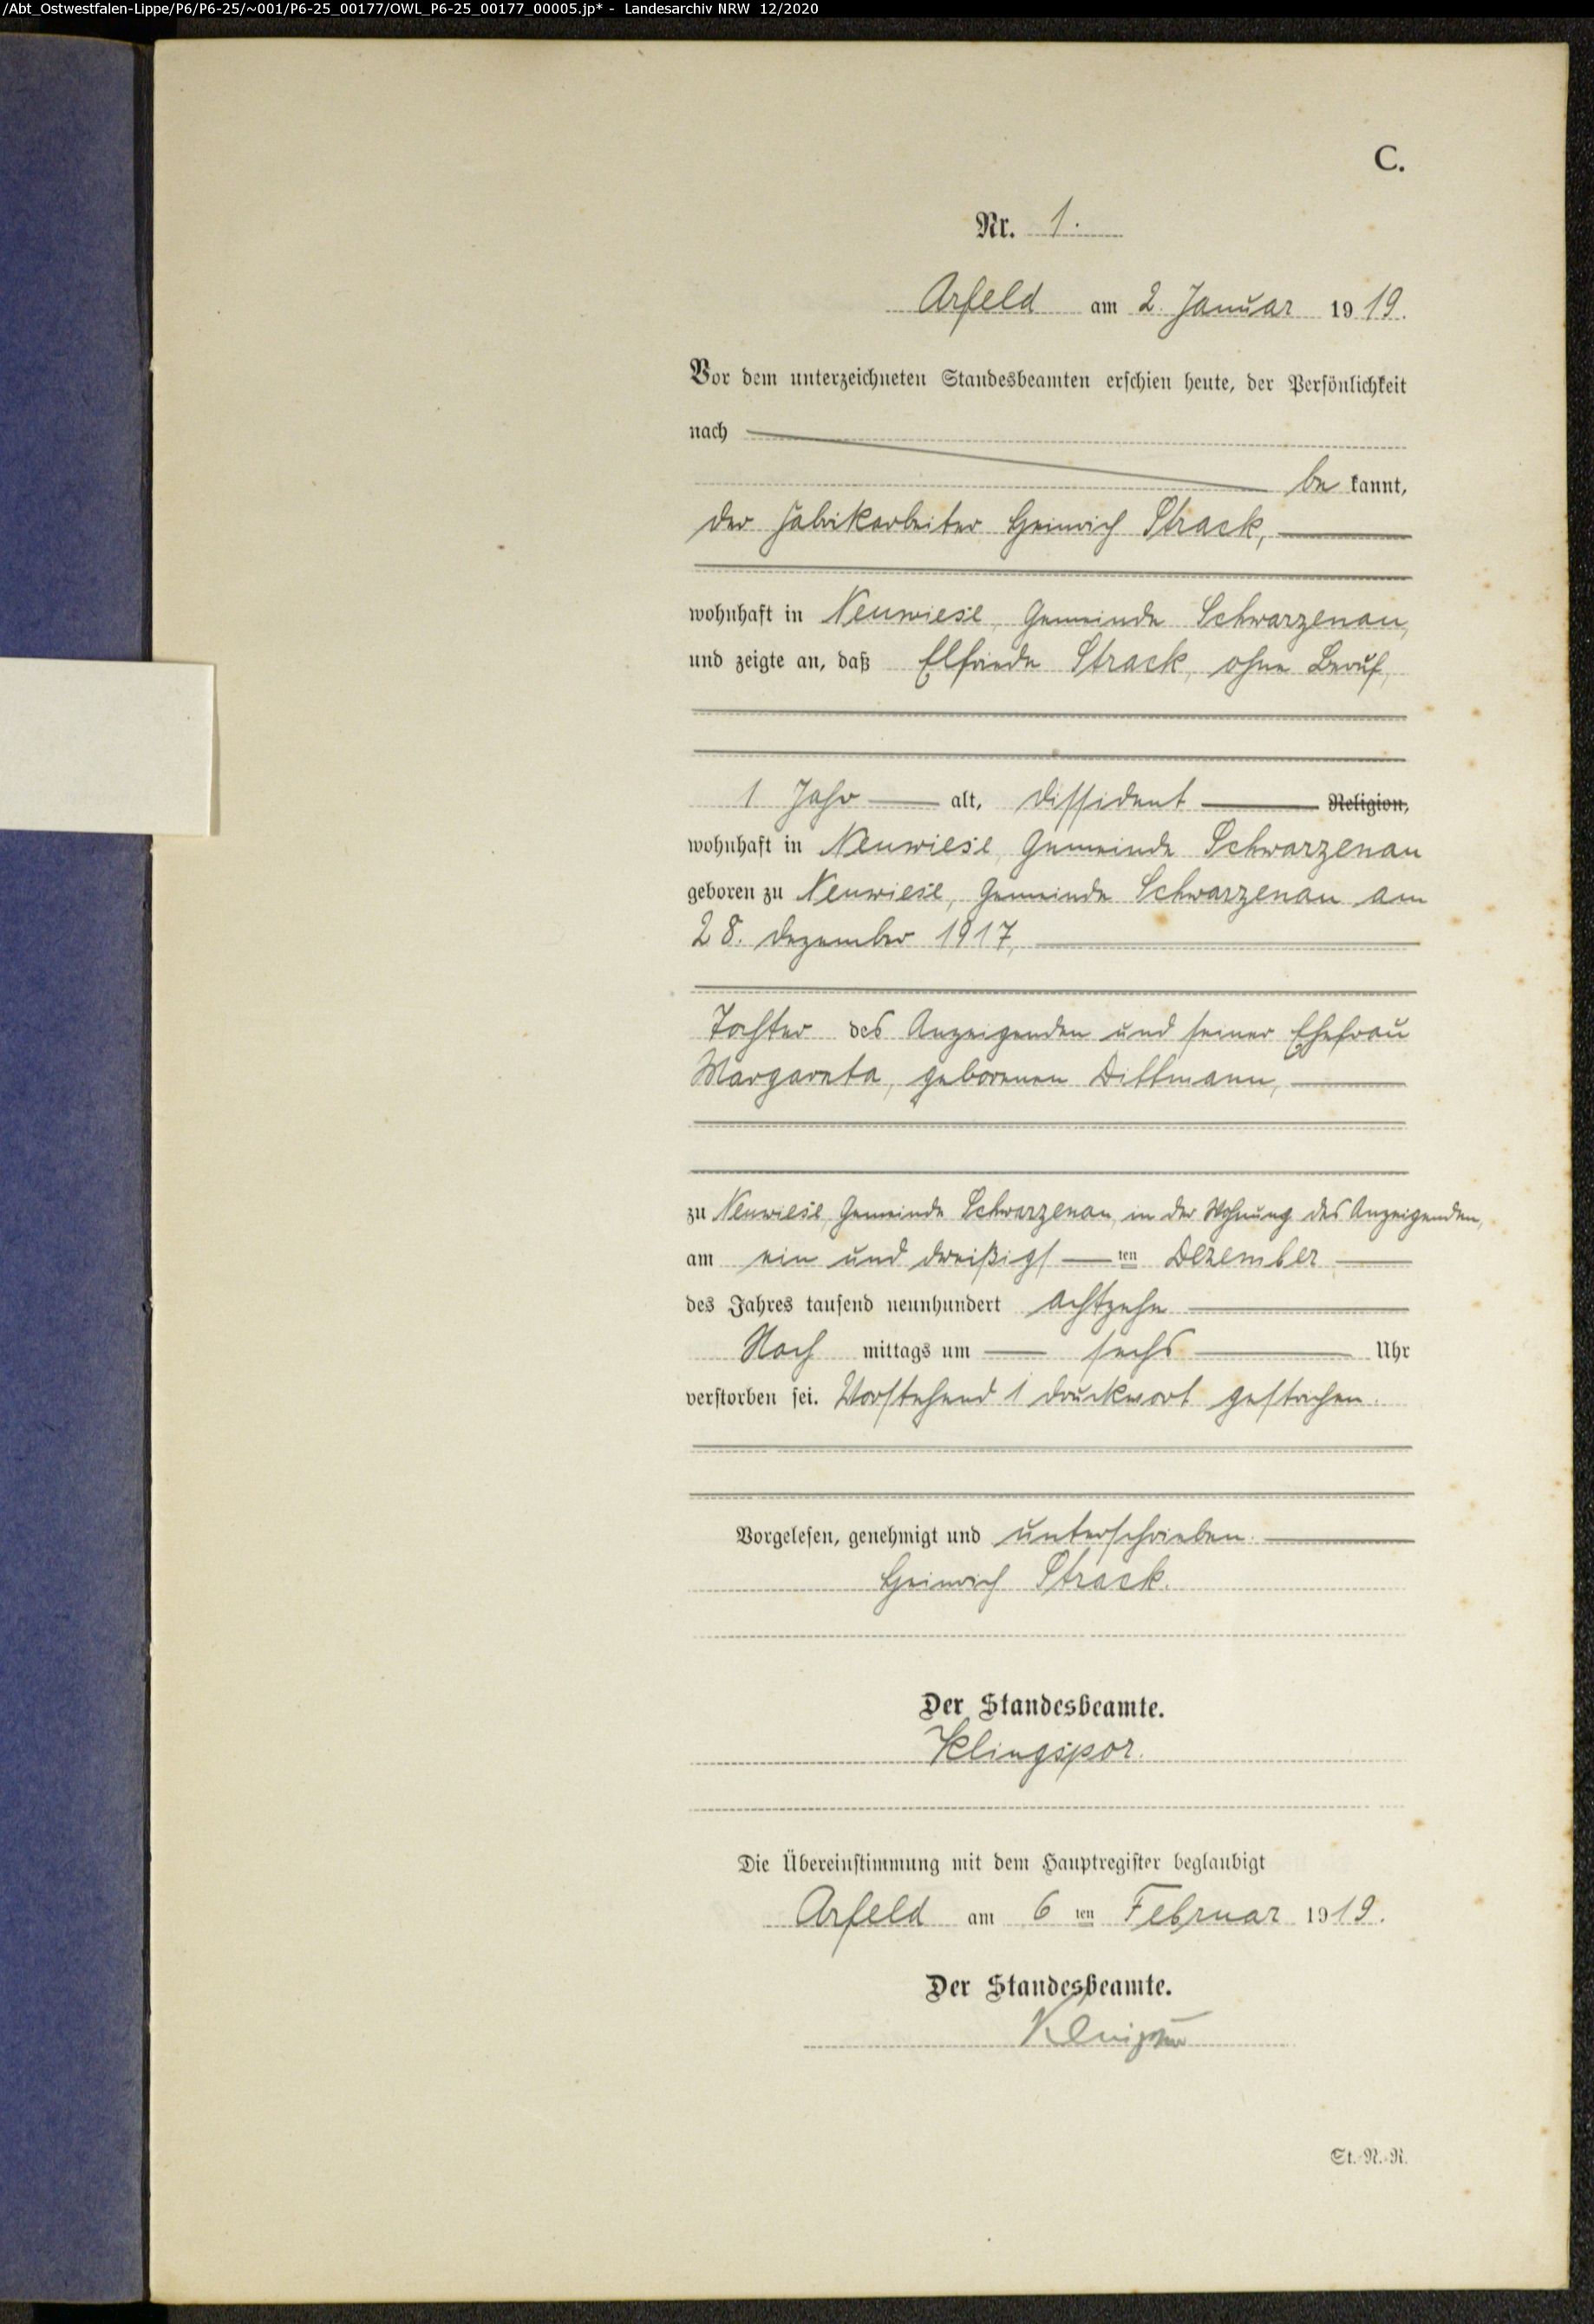 /Abt_Ostwestfalen-Lippe/P6/P6-25/~001/P6-25_00177/OWL_P6-25_00177_00005.jp* - Landesarchiv NRW 12/2020
C.
Nr. 1.
Arfeld am 2. Januar 1919.
Vor dem unterzeichneten Standesbeamten erschien heute, der Persönlichkeit
nach
be kannt,
der Fabrikarbeiter Heinrich Strack,
wohnhaft in Neuwiese, Gemeinde Schwarzenau,
und zeigte an, daß Elfriede Strack, ohne Beruf,
1 Jahr alt, Dissident Religion,
wohnhaft in Neuwiese, Gemeinde Schwarzenau
geboren zu Neuwiese, Gemeinde Schwarzenau am
28. Dezember 1917,
Tochter des Anzeigenden und seiner Ehefrau
Margareta, geborenen Dittmann,
zu Neuwiese, Gemeinde Schwarzenau, in der Wohnung des Anzeigenden,
am ein und dreißigs ten Dezember
des Jahres tausend neunhundert achtzehn
Nach mittags um sechs Uhr
verstorben sei. Vorstehend 1 Druckwort gestrichen.
Vorgelesen, genehmigt und unterschrieben.
Heinrich Strack.
Der Standesbeamte.
Klingspor.
Die Übereinstimmung mit dem Hauptregister beglaubigt
Arfeld am 6 ten Februar 1919.
Der Standesbeamte.
Klingspor
St.-N.-R.